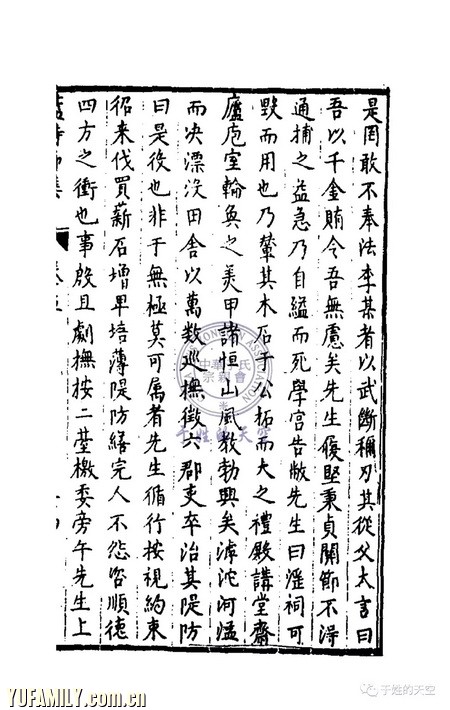 是罔敢不奉法李某者以武斷稱刃其從父大言曰
吾以千金賄令吾無慮矣先生履堅秉貞關節不淂
通捕之益急乃自縊而死學宮告敝先生曰滛祠可
毀而用也乃輦其木石于公拓而大之禮殿講堂齋
廬庖室輪奐之美甲諸恒山風教勃興矣滹沱河溢
而决漂沒田舍以萬數巡撫徵六郡吏卒治其隄防
曰是役也非于無極莫可属者先生循行按視約束
招来伐買薪石增卑培薄隄防繕完人不怨咨順德
四方之衝也事殷且劇撫按二臺檄委旁午先生上
于姓的天空
YUFAMILY.com.cn
于姓的天空